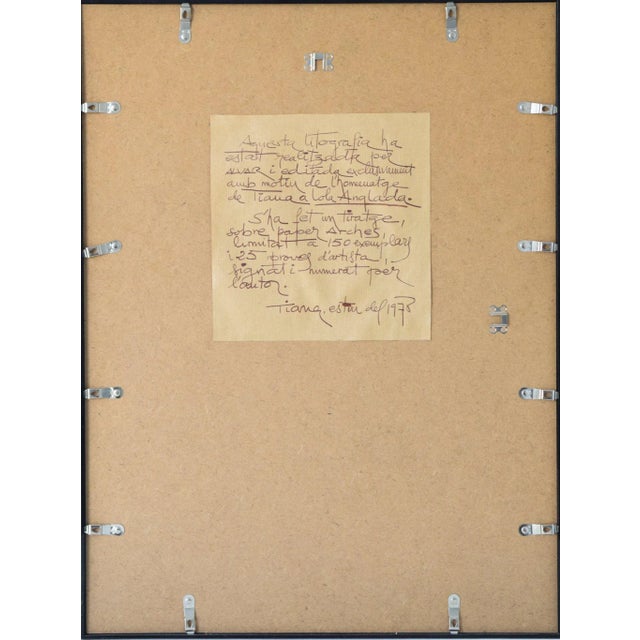 Aquesta litografia ha
estat realitzada per
susa i editada exclusivament
amb motiu de l'homenatge
de Tiana a Lola Anglada.
S'ha fet un tiratge,
sobre paper Arches,
limitat a 150 exemplars
i 25 proves d'artista,
signat i numerat per
l'autor.
Tiana, estiu del 1975